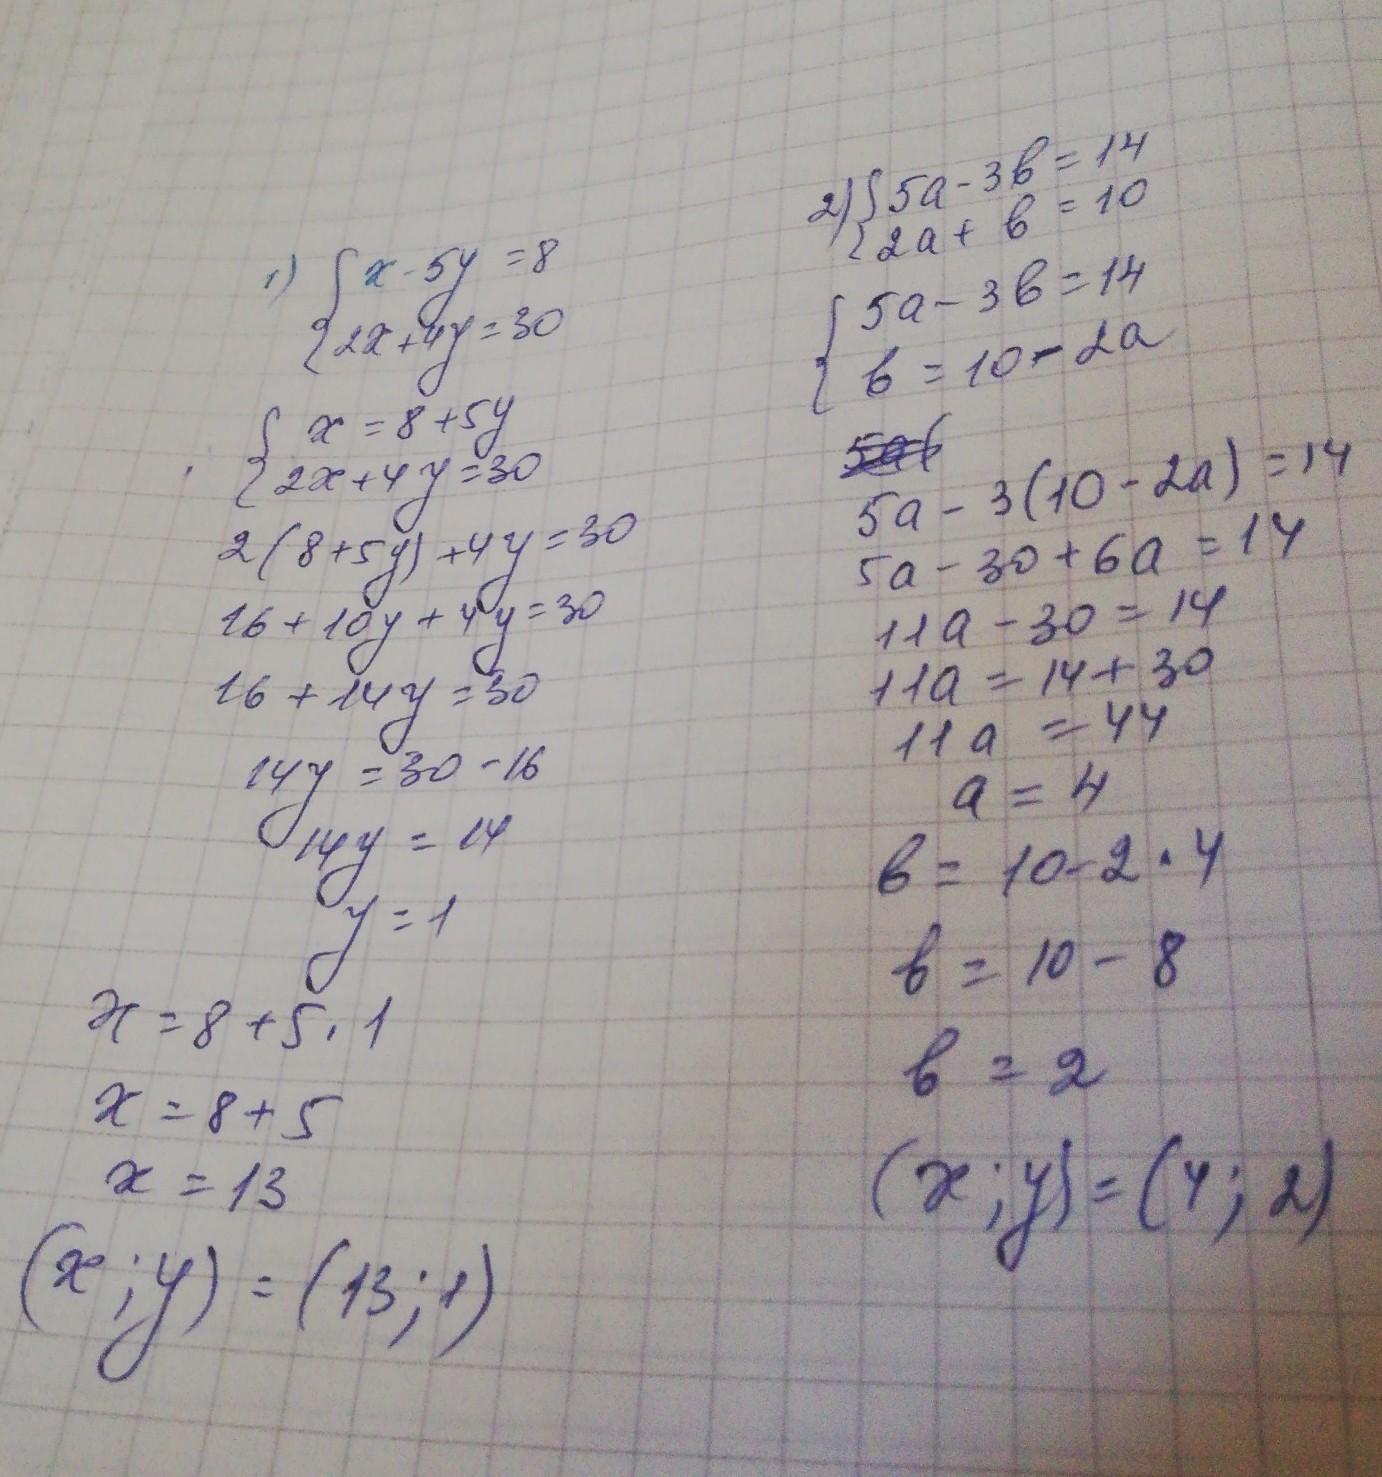 1) { x - 5y = 8
2x + 4y = 30
{ x = 8 + 5y
2x + 4y = 30
2(8 + 5y) + 4y = 30
16 + 10y + 4y = 30
16 + 14y = 30
14y = 30 - 16
14y = 14
y = 1
x = 8 + 5 · 1
x = 8 + 5
x = 13
(x; y) = (13; 1)
2) { 5a - 3b = 14
2a + b = 10
{ 5a - 3b = 14
b = 10 - 2a
5a - 3(10 - 2a) = 14
5a - 30 + 6a = 14
11a - 30 = 14
11a = 14 + 30
11a = 44
a = 4
b = 10 - 2 · 4
b = 10 - 8
b = 2
(x; y) = (4; 2)